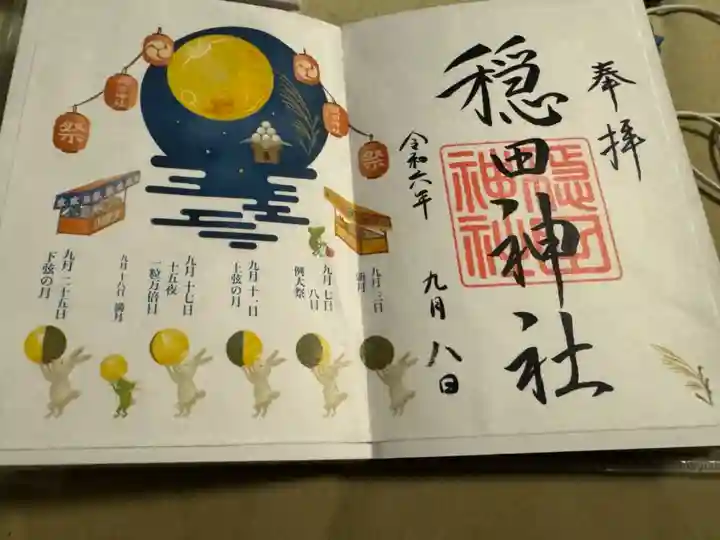 奉拝
穏田神社
穏田神社
令和六年
九月八日
祭
祭
九月三日
新月
九月七日
八日
例大祭
九月十一日
上弦の月
九月十七日
十五夜
一粒万倍日
九月十八日 満月
九月二十五日
下弦の月